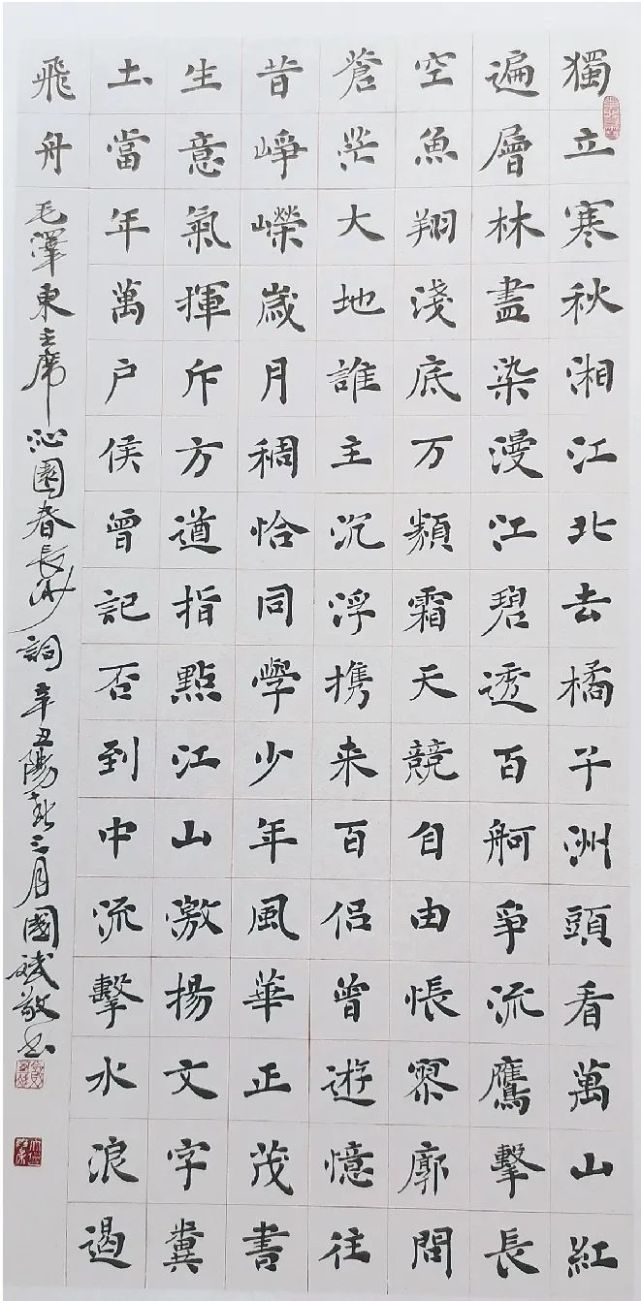 獨立寒秋湘江北去橘子洲頭看萬山紅
遍層林盡染漫江碧透百舸爭流鷹擊長
空魚翔淺底万類霜天競自由悵寥廓問
蒼茫大地誰主沉浮携来百侣曾遊憶往
昔崢嶸歲月稠恰同學少年風華正茂書
生意氣揮斥方遒指點江山激揚文字糞
土當年萬户侯曾記否到中流擊水浪遏
飛舟 毛澤東主席沁園春長沙詞 辛丑陽春三月國斌敬书